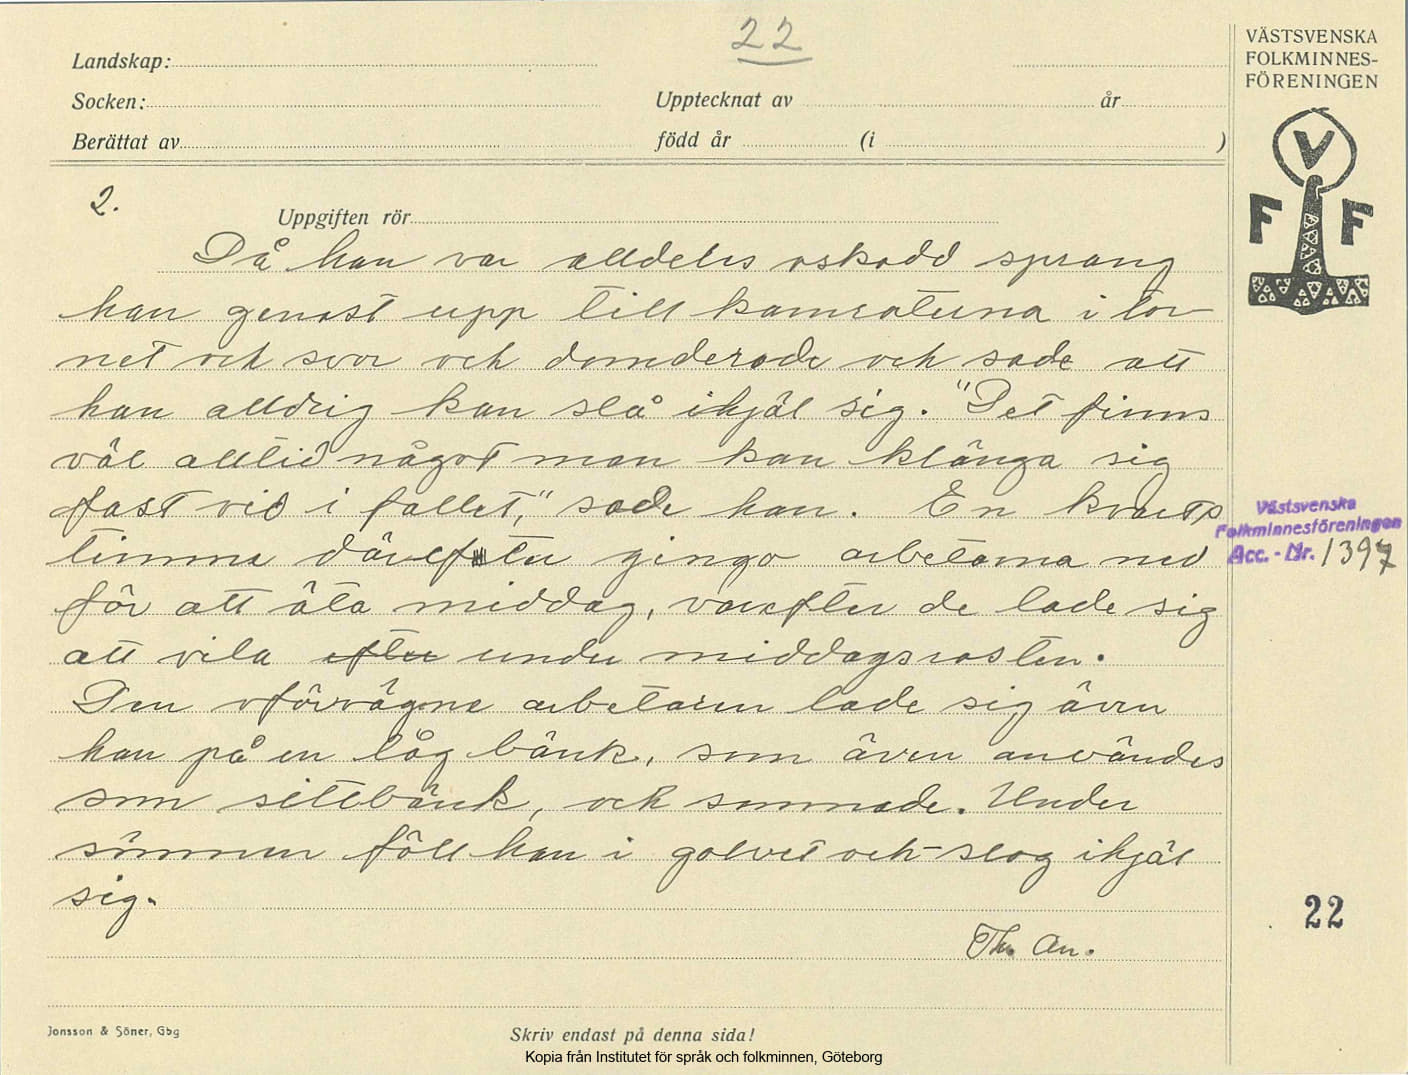 22
Landskap:
Socken:
Upptecknat av år
Berättat av född år (i )
VÄSTSVENSKA
FOLKMINNES-
FÖRENINGEN
V
F F
2.
Uppgiften rör
Då han var alldeles oskadd sprang
han genast upp till kamraterna i tor-
net och svor och domderade och sade att
han alldrig kan slå ihjäl sig. "Det finns
väl alltid något man kan klänga sig
fast vid i fallet," sade han. En kvarts
timma därefter gingo arbetarna ned
för att äta middag, varefter de lade sig
att vila efter under middagsrasten.
Den oförvägne arbetaren lade sig även
han på en låg bänk, som även användes
som sittbänk, och somnade. Under
sömnen föll han i golvet och slog ihjäl
sig.
Th. An.
Västsvenska
Folkminnesföreningen
Acc. - Nr. 1397
22
Jonsson & Söner, Gbg
Skriv endast på denna sida!
Kopia från Institutet för språk och folkminnen, Göteborg